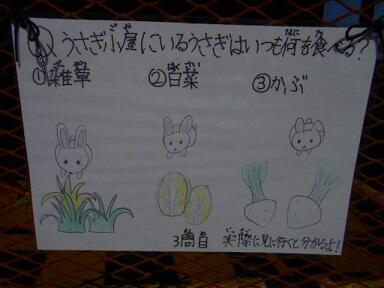 Q、うさぎ小屋にいるうさぎはいつも何を食べる?
①雑草 ②白菜 ③かぶ
3箇目 実際に見に行くと分かるよ!